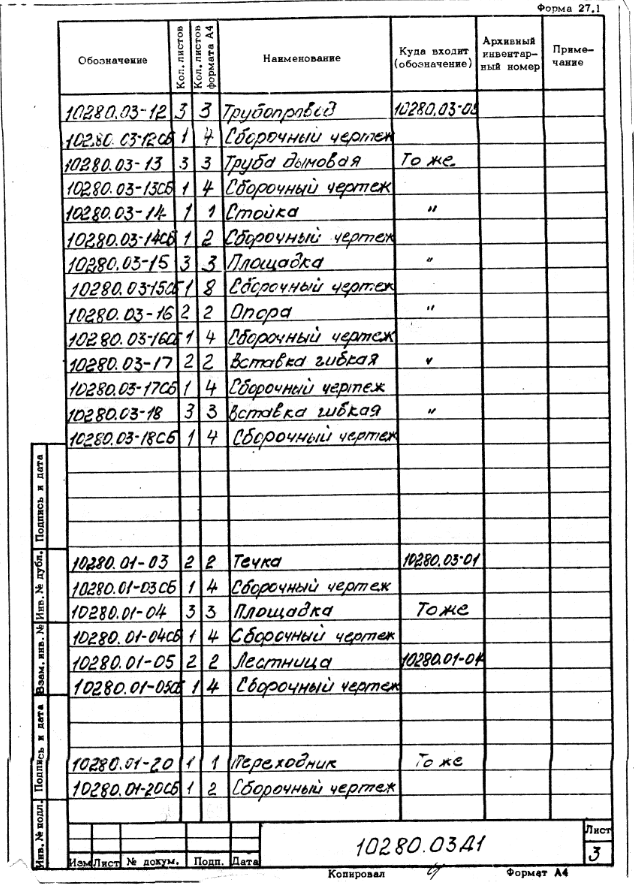 Форма 27.1
Обозначение Кол. листов Кол. листов формата А4 Наименование Куда входит (обозначение) Архивный инвентарный номер Примечание
10280.03-12 3 3 Трубопровод 10280.03-01
10280.03-12СБ 1 4 Сборочный чертеж
10280.03-13 3 3 Труба дымовая То же
10280.03-13СБ 1 4 Сборочный чертеж
10280.03-14 1 1 Стойка "
10280.03-14СБ 1 2 Сборочный чертеж
10280.03-15 3 3 Площадка "
10280.03-15СБ 1 8 Сборочный чертеж
10280.03-16 2 2 Опора "
10280.03-16СБ 1 4 Сборочный чертеж
10280.03-17 2 2 Вставка гибкая "
10280.03-17СБ 1 4 Сборочный чертеж
10280.03-18 3 3 Вставка гибкая "
10280.03-18СБ 1 4 Сборочный чертеж
10280.01-03 2 2 Течка 10280.03-01
10280.01-03СБ 1 4 Сборочный чертеж
10280.01-04 3 3 Площадка То же
10280.01-04СБ 1 4 Сборочный чертеж
10280.01-05 2 2 Лестница 10280.01-04
10280.01-05СБ 1 4 Сборочный чертеж
10280.01-20 1 1 Переходник То же
10280.01-20СБ 1 2 Сборочный чертеж
Инв. № подл. Подпись и дата Взам. инв. № Инв. № дубл. Подпись и дата
Изм Лист № докум. Подп. Дата
10280.03Д1
Лист
3
Копировал
Формат А4